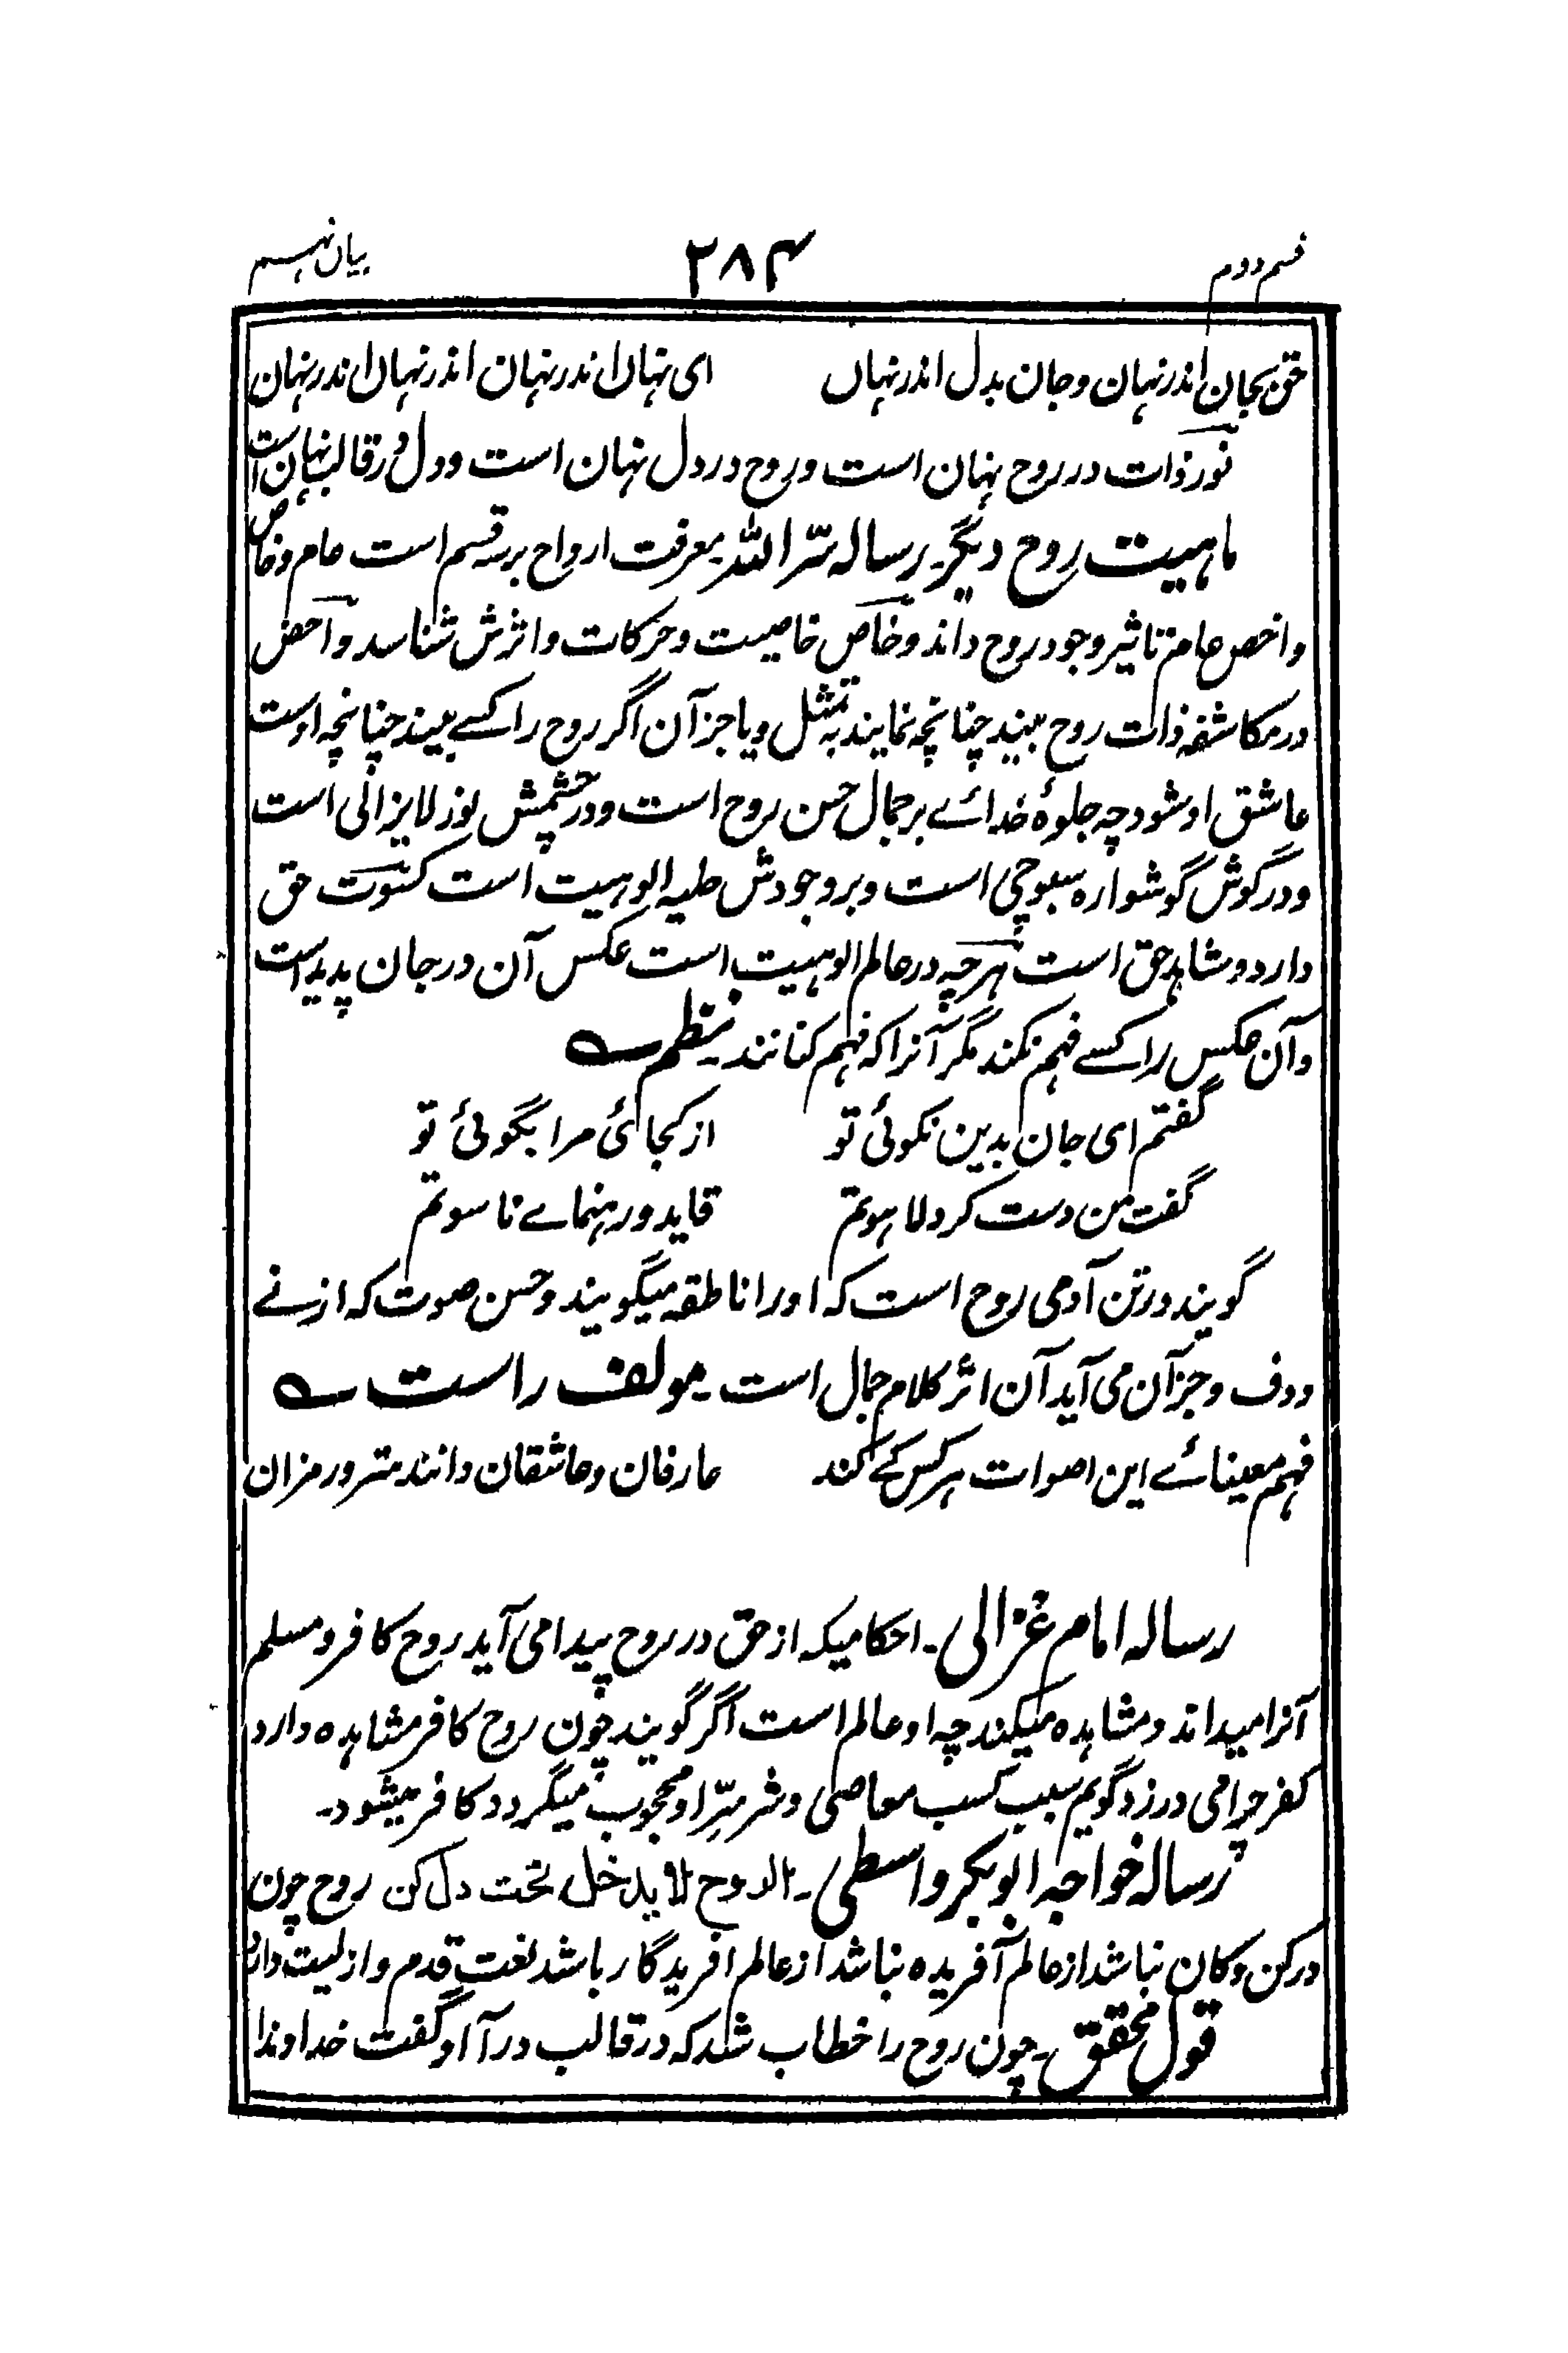 قسم دوم ۲۸۴ بیان نهم
حق بجان اندر نہان و جان بدل اندر نہاں ای نہاں اندر نہان اندر نہاں اندر نہان
نور ذات در روح نہان است و روح در دل نہان است و دل در قالب نہان است
ماہیت روح دیگر۔ رسالہ سرّ اللہ۔ معرفت ارواح بر سہ قسم است عام و خاص
و اخص عام تاثیر وجود روح داند و خاص خاصیت و حرکات و اثرش شناسد و اخص
در مکاشفہ ذات روح بیند چنانچہ نمایند بہ تمثل و یا جز آن اگر روح را کسے بیند چنانچہ اوست
عاشق او شود چہ جلوۂ خدائے بر جمال حسن روح است و در چشمش نور لایزالی است
و در گوش گوشوارہ سبوحی است و بر وجودش حلیہ الوہیت است کسوت حق
دارد و مشاہد حق است ہرچہ در عالم الوہیت است عکس آن در جان پدید است
و آن عکس را کسے فہم نکند مگر آنرا کہ فہم کنانند۔ نظم
گفتم ای جان بدین نکوئی تو از کجائی مرا بگوئی تو
گفت من دست کرد لاہوتم قاید و رہنماے ناسوتم
گویند در تن آدمی روح است کہ او را ناطقہ میگویند و حسن صوت کہ از نے
و دف و جز آن می آید آن اثر کلام جمال است۔ مولف راست
فہم معینائے این اصوات ہر کس کے کند عارفان و عاشقان دانند سر و رمز آن
رسالہ امام غزالی۔ احکامیکہ از حق در روح پیدا می آید روح کافر و مسلم
آنرا میداند و مشاہدہ میکند چہ او عالم است اگر گویند چون روح کافر مشاہدہ دارد
کفر چرا می درزد گویم سبب کسب معاصی و شر سرّ او محجوب میگردد کافر میشود۔
رسالہ خواجہ ابوبکر واسطی۔ الروح لا یدخل تحت ذل کن روح چون
در کن و کان نباشد از عالم آفریدہ نباشد از عالم آفریدگار باشد نعت قدم و ازلیت دارد
قول محقق۔ چون روح را خطاب شد کہ در قالب در آ او گفت خداوندا